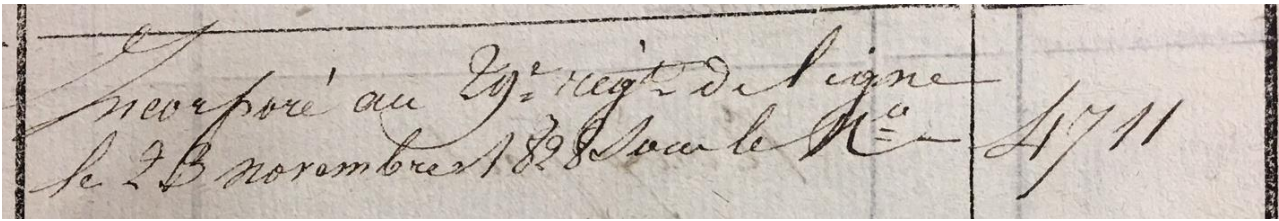 Incorporé au 29e. régt. de ligne
le 23 novembre 1828 sous le No. 4711